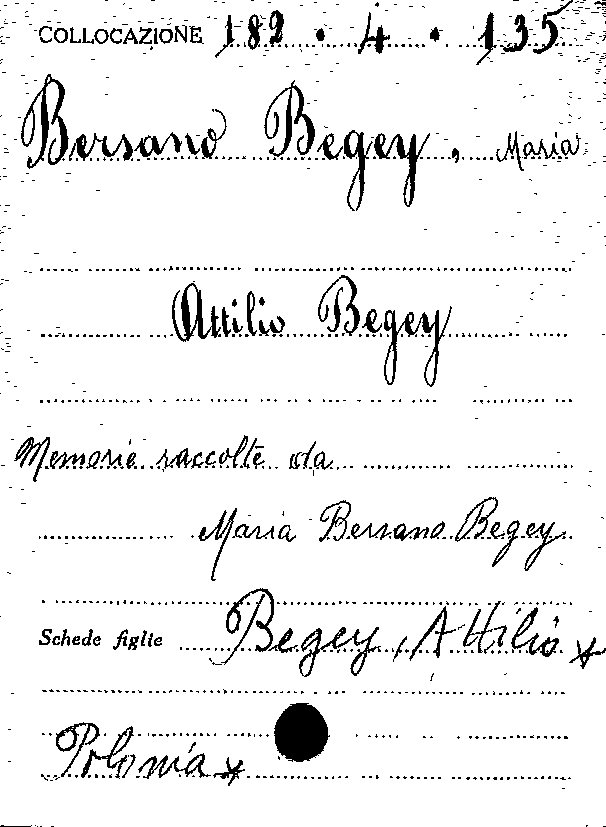 COLLOCAZIONE 182 . 4 . 135
Bersano Begey, Maria
Attilio Begey
Memorie raccolte da
Maria Bersano Begey
Schede figlie Begey, Attilio *
Polonia *